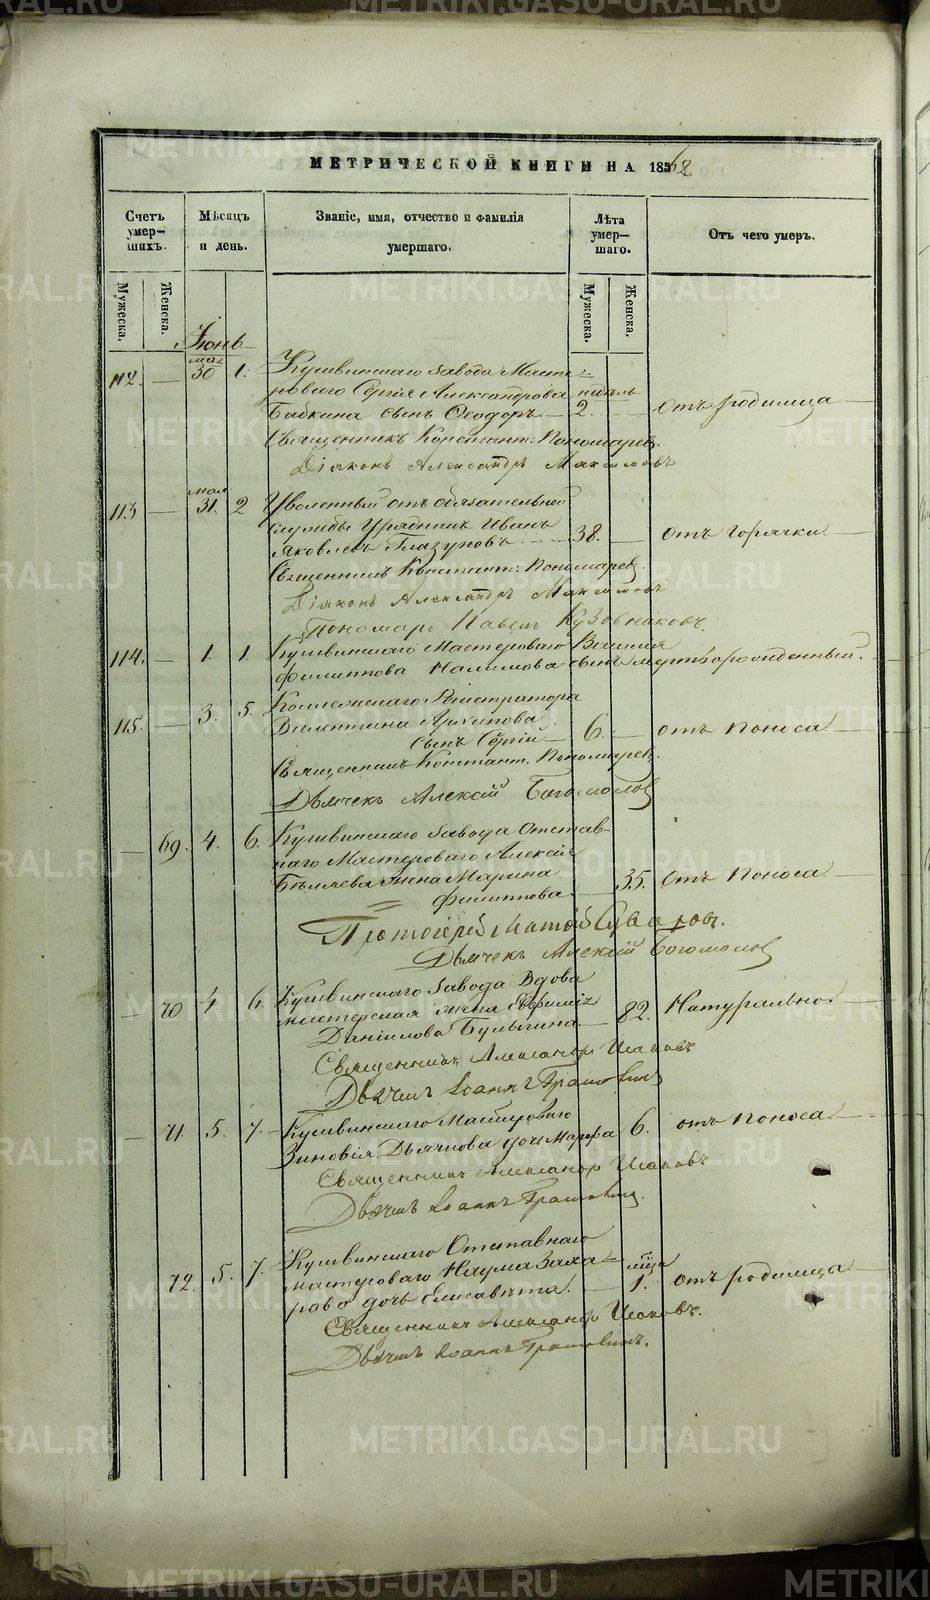 МЕТРИЧЕСКОЙ КНИГИ НА 1862
Счетъ умер-шихъ.
Мѣсяцъ и день.
Званіе, имя, отчество и фамилія умершаго.
Лѣта умер-шаго.
Отъ чего умеръ.
Мужеска.
Женска.
Мужеска.
Женска.
Іюнь
112. — мая 30 1. Кушвинскаго завода Масте-
роваго Сергія Александрова недѣль
Бабкина сынъ Ѳеодоръ — 2. — отъ родимца —
Священникъ Констант: Пономаревъ.
Діаконъ Александръ Максимовъ
113 — мая 31. 2 Уволенный отъ обязательной
службы Урядникъ Иванъ
Яковлевъ Глазуновъ 38. — отъ Горячки —
Священникъ Констант: Пономаревъ.
Діаконъ Александръ Максимовъ
Пономарь Павелъ Кузовниковъ.
114. — 1. 1 Кушвинскаго Мастероваго
Филиппова Налимова сынъ мертворожденный.
115. — 3. 5. Коллежскаго Регистратора
Валентина Архипова
сынъ Сергій — 6. — отъ Поноса —
Священникъ Констант. Пономаревъ.
Дьячекъ Алексій Богомоловъ
— 69. 4. 6. Кушвинскаго завода Отстав-
наго Мастероваго Алексія
Бѣляева жена Марина
Филиппова — 35. отъ Поноса —
Протоіерей
Дьячекъ Алексій Богомоловъ
— 70 4 6. Кушвинскаго завода Вдова
мастерская жена
Даніилова Булыгина — 82. Натурально —
Священникъ Александръ Исаковъ
Дьячекъ Іоаннъ
— 71. 5. 7. — Кушвинскаго Мастероваго
Зиновія Дьячкова дочь Марфа 6. отъ Поноса —
Священникъ Александръ Исаковъ
Дьячекъ Іоаннъ
72. 5. 7. Кушвинскаго Отставнаго
мастероваго Наума Заха- — мѣсяца
рова дочь Елисавета. — 1. отъ родимца —
Священникъ Александръ Исаковъ.
Дьячекъ Іоаннъ
METRIKI.GASO-URAL.RU